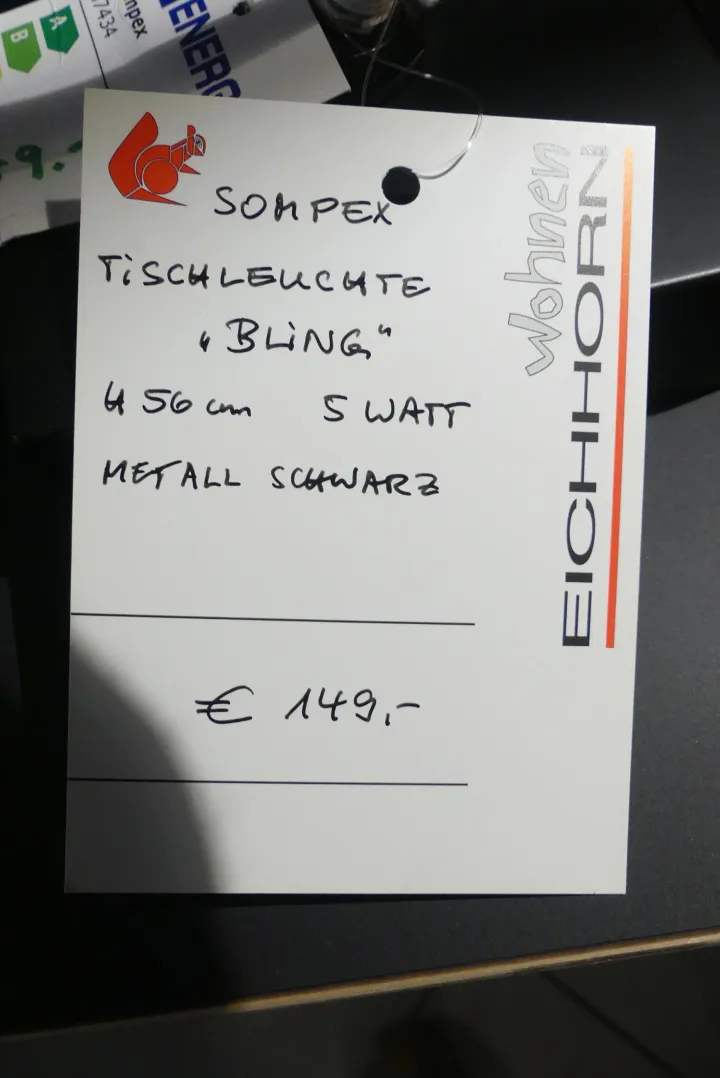 A
B
7434
mpex
ENERG
9.
SOMPEX
TiSCHLEUCHTE
„BLiNG“
H 56 cm 5 WATT
METALL SCHWARZ
€ 149,-
Wohnen
EICHHORN